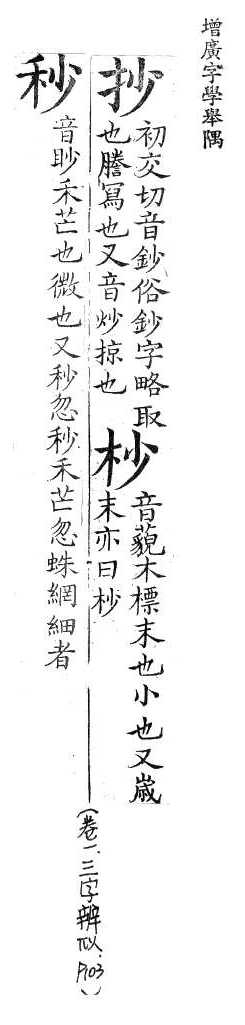 增廣字學舉隅
抄 初交切音鈔俗鈔字略取
也謄寫也又音炒掠也
杪 音藐木標末也小也又歲
末亦曰杪
秒 音眇禾芒也微也又秒忽秒禾芒忽蛛網細者
(卷一.三字辨似.P.103)